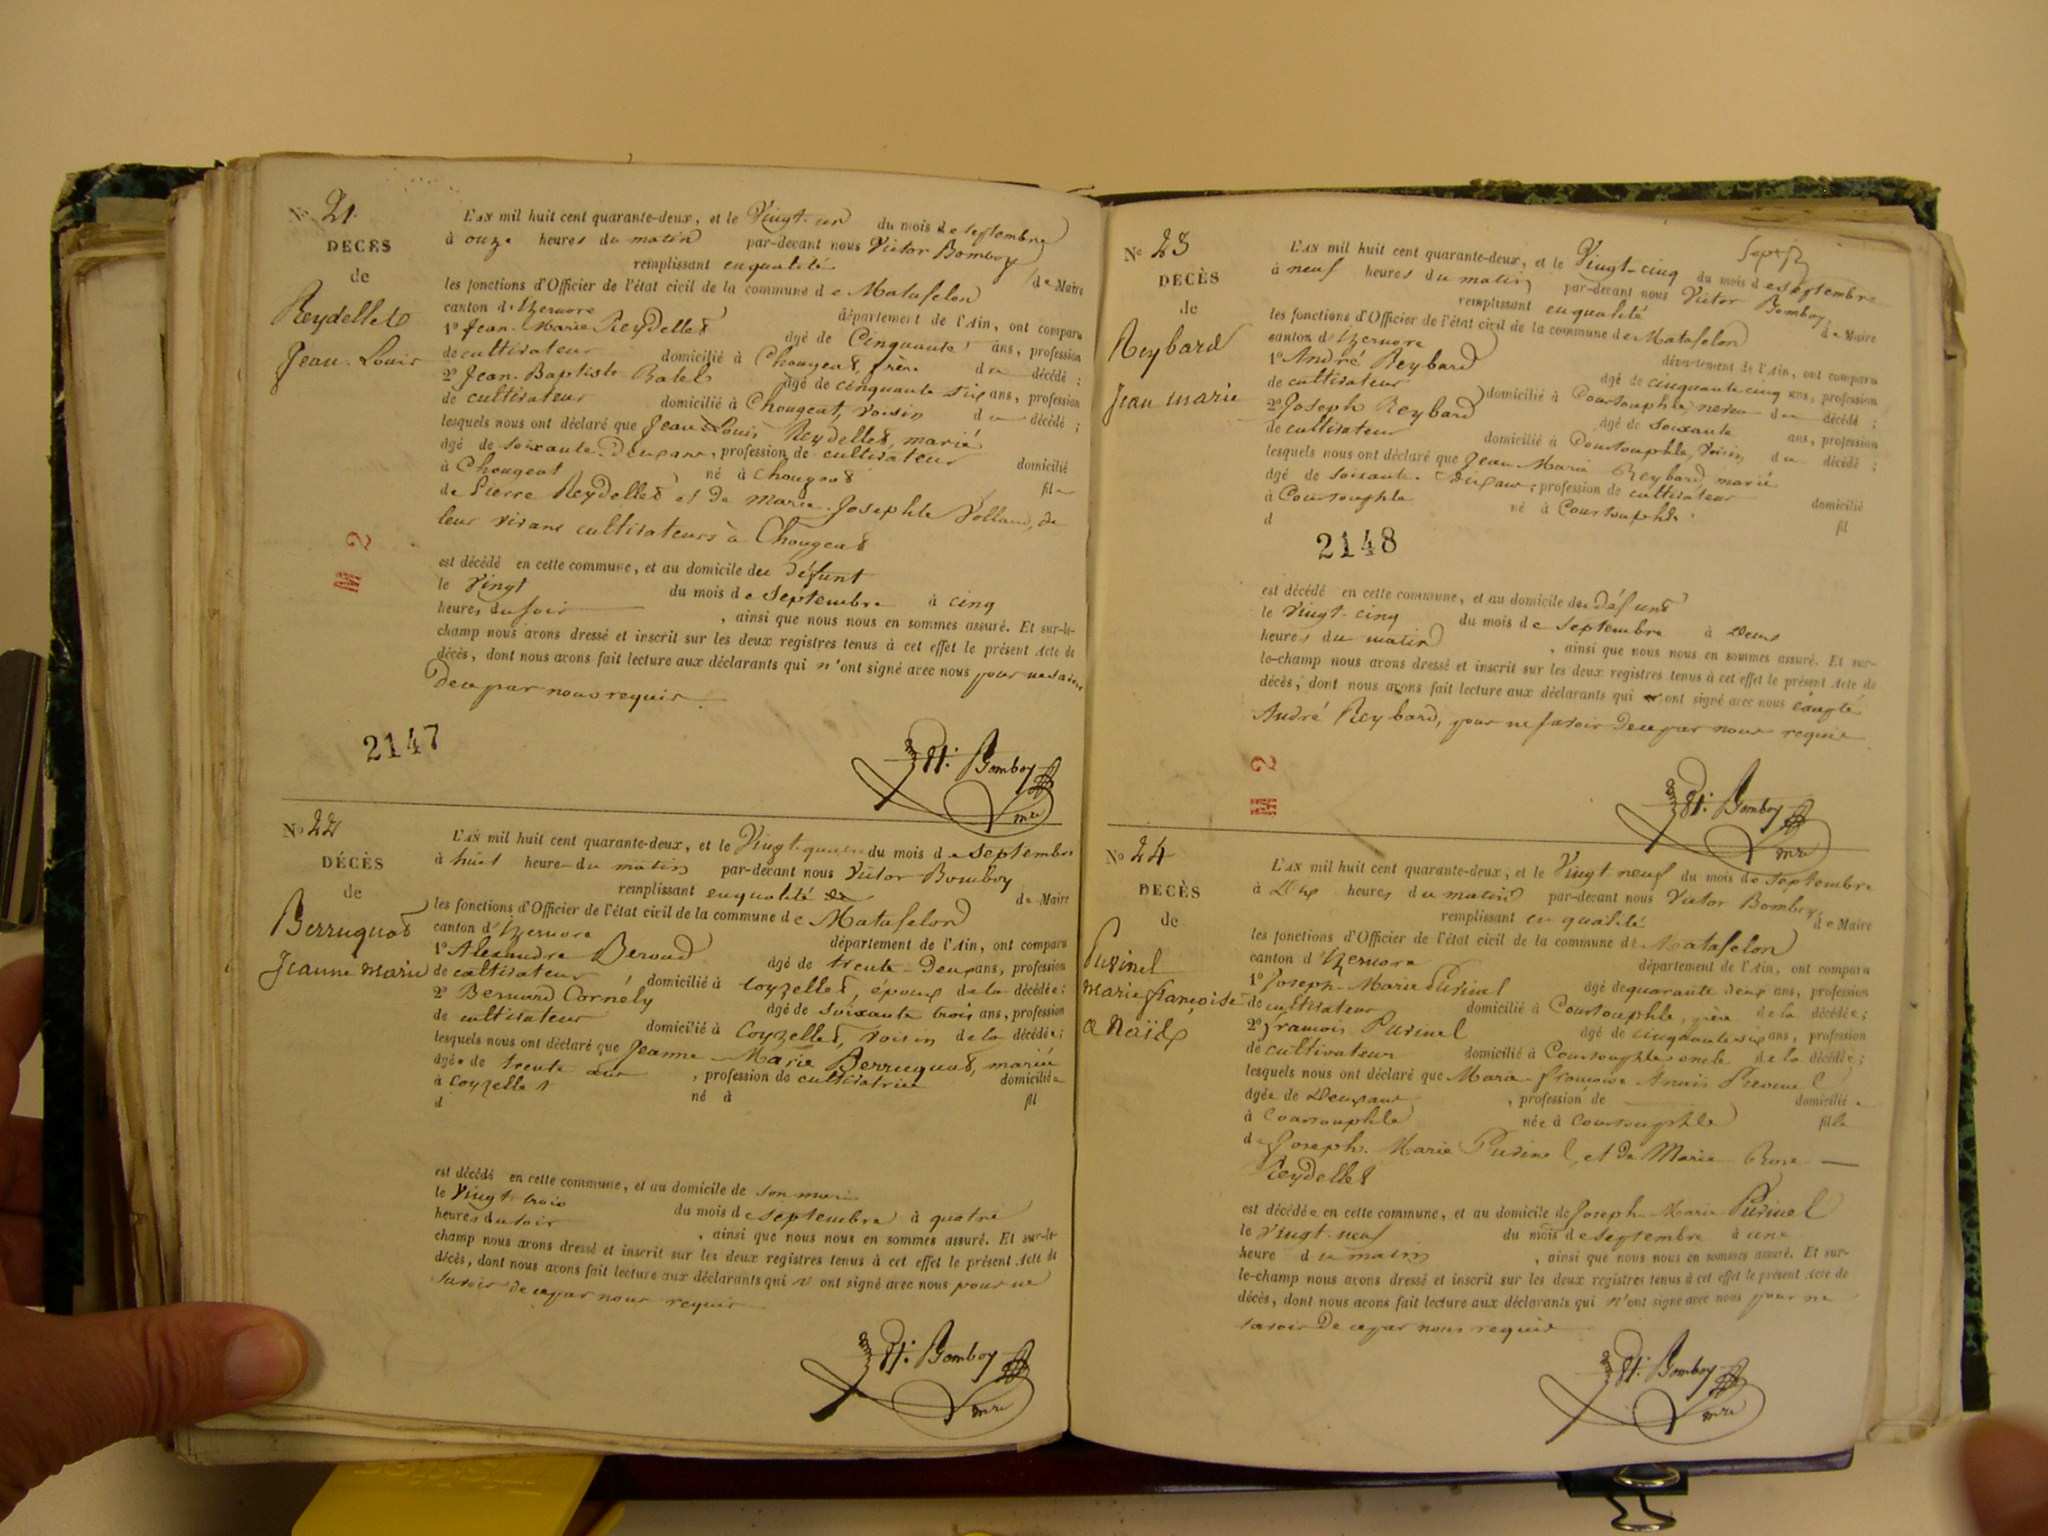 N° 21.
DECÈS
de
Reydellet
Jean-Louis
L'AN mil huit cent quarante-deux, et le Vingt-un du mois de septembre
à onze heures du matin par-devant nous Victor Bomboy
remplissant en qualité de Maire
les fonctions d'Officier de l'état civil de la commune de Matafelon
canton d'Izernore département de l'Ain, ont comparu
1° Jean-Marie Reydellet âgé de Cinquante ans, profession
de cultivateur domicilié à Chougeat, frère du décédé ;
2° Jean-Baptiste âgé de cinquante six ans, profession
de cultivateur domicilié à Chougeat, voisin du décédé ;
lesquels nous ont déclaré que Jean-Louis Reydellet, marié
âgé de soixante-deux ans, profession de cultivateur domicilié
à Chougeat né à Chougeat fils
de Pierre Reydellet et de Marie-Josephte de
leur vivant cultivateurs à Chougeat
est décédé en cette commune, et au domicile du défunt
le Vingt du mois de Septembre à cinq
heures du soir , ainsi que nous nous en sommes assuré. Et sur-le-
champ nous avons dressé et inscrit sur les deux registres tenus à cet effet le présent Acte de
décès, dont nous avons fait lecture aux déclarants qui n'ont signé avec nous pour ne savoir
De ce par nous requis.
2147
M 2
Vt. Bomboy
mre
N° 22
DÉCÈS
de
Berruquet
Jeanne Marie
L'AN mil huit cent quarante-deux, et le Vingt-quatre du mois de septembre
à huit heures du matin par-devant nous Victor Bomboy
remplissant en qualité de de Maire
les fonctions d'Officier de l'état civil de la commune de Matafelon
canton d'Izernore département de l'Ain, ont comparu
1° Alexandre Beroud âgé de trente-deux ans, profession
de cultivateur domicilié à Coyzellet, époux de la décédée ;
2° Bernard Cornely âgé de soixante trois ans, profession
de cultivateur domicilié à Coyzellet, voisin de la décédée ;
lesquels nous ont déclaré que Jeanne-Marie Berruquet, mariée
âgée de trente ans , profession de cultivatrice domiciliée
à Coyzellet né à fil
d
est décédé en cette commune, et au domicile de son mari
le Vingt-trois du mois de septembre à quatre
heures du soir , ainsi que nous nous en sommes assuré. Et sur-le-
champ nous avons dressé et inscrit sur les deux registres tenus à cet effet le présent Acte de
décès, dont nous avons fait lecture aux déclarants qui n'ont signé avec nous pour ne
savoir de ce par nous requis
Vt. Bomboy
mre
N° 23
DÉCÈS
de
Reybard
Jean Marie
L'AN mil huit cent quarante-deux, et le Vingt-cinq du mois de septembre
à neuf heures du matin par-devant nous Victor Bomboy
remplissant en qualité de Maire
les fonctions d'Officier de l'état civil de la commune de Matafelon
canton d'Izernore département de l'Ain, ont comparu
1° André Reybard âgé de cinquante cinq ans, profession
de cultivateur domicilié à Courtouphle, neveu du décédé ;
2° Joseph Reybard âgé de soixante ans, profession
de cultivateur domicilié à Courtouphle, voisin du décédé ;
lesquels nous ont déclaré que Jean-Marie Reybard marié
âgé de soixante-dix ans, profession de cultivateur domicilié
à Courtouphle né à Courtouphle fil
d
2148
est décédé en cette commune, et au domicile du défunt
le Vingt-cinq du mois de septembre à deux
heures du matin , ainsi que nous nous en sommes assuré. Et sur-
le-champ nous avons dressé et inscrit sur les deux registres tenus à cet effet le présent Acte de
décès, dont nous avons fait lecture aux déclarants qui ont signé avec nous excepté
André Reybard, pour ne savoir de ce par nous requis
M 2
Vt. Bomboy
mre
N° 24
DECÈS
de
Puvinel
Marie françoise
anaïde
L'AN mil huit cent quarante-deux, et le Vingt neuf du mois de septembre
à dix heures du matin par-devant nous Victor Bomboy
remplissant en qualité de Maire
les fonctions d'Officier de l'état civil de la commune de Matafelon
canton d'Izernore département de l'Ain, ont comparu
1° Joseph-Marie Puvinel âgé de quarante deux ans, profession
de cultivateur domicilié à Courtouphle, père de la décédée ;
2° francois Puvinel âgé de cinquante six ans, profession
de cultivateur domicilié à Courtouphle oncle de la décédée ;
lesquels nous ont déclaré que Marie-françoise Anaïs Puvinel
âgée de Deux ans , profession de domiciliée
à Courtouphle née à Courtouphle fille
de Joseph-Marie Puvinel, et de Marie Rose
Reydellet
est décédée en cette commune, et au domicile de Joseph-Marie Puvinel
le Vingt-neuf du mois de septembre à une
heure du matin , ainsi que nous nous en sommes assuré. Et sur-
le-champ nous avons dressé et inscrit sur les deux registres tenus à cet effet le présent Acte de
décès, dont nous avons fait lecture aux déclarants qui n'ont signé avec nous pour ne
savoir De ce par nous requis
Vt. Bomboy
mre